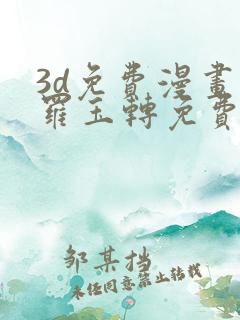 3d免費漫畫
羅玉轉免費
邹某挡
未经同意禁止转载